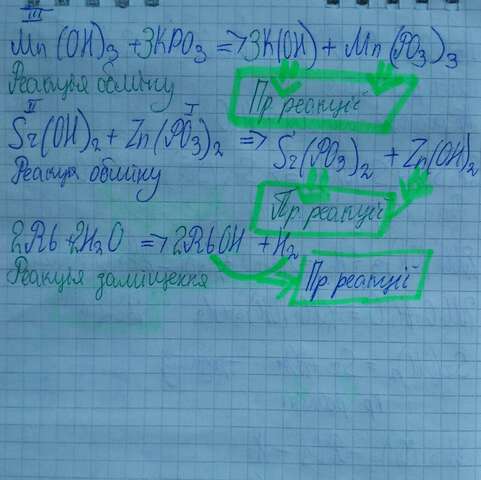 III
Mn(OH)₃ + 3KPO₃ => 3K(OH) + Mn(PO₃)₃
Реакція обміну
Пр. реакції
II I
Sr(OH)₂ + Zn(PO₃)₂ => Sr(PO₃)₂ + Zn(OH)₂
Реакція обміну
Пр. реакції
2Rb + 2H₂O => 2RbOH + H₂
Реакція заміщення
Пр. реакції